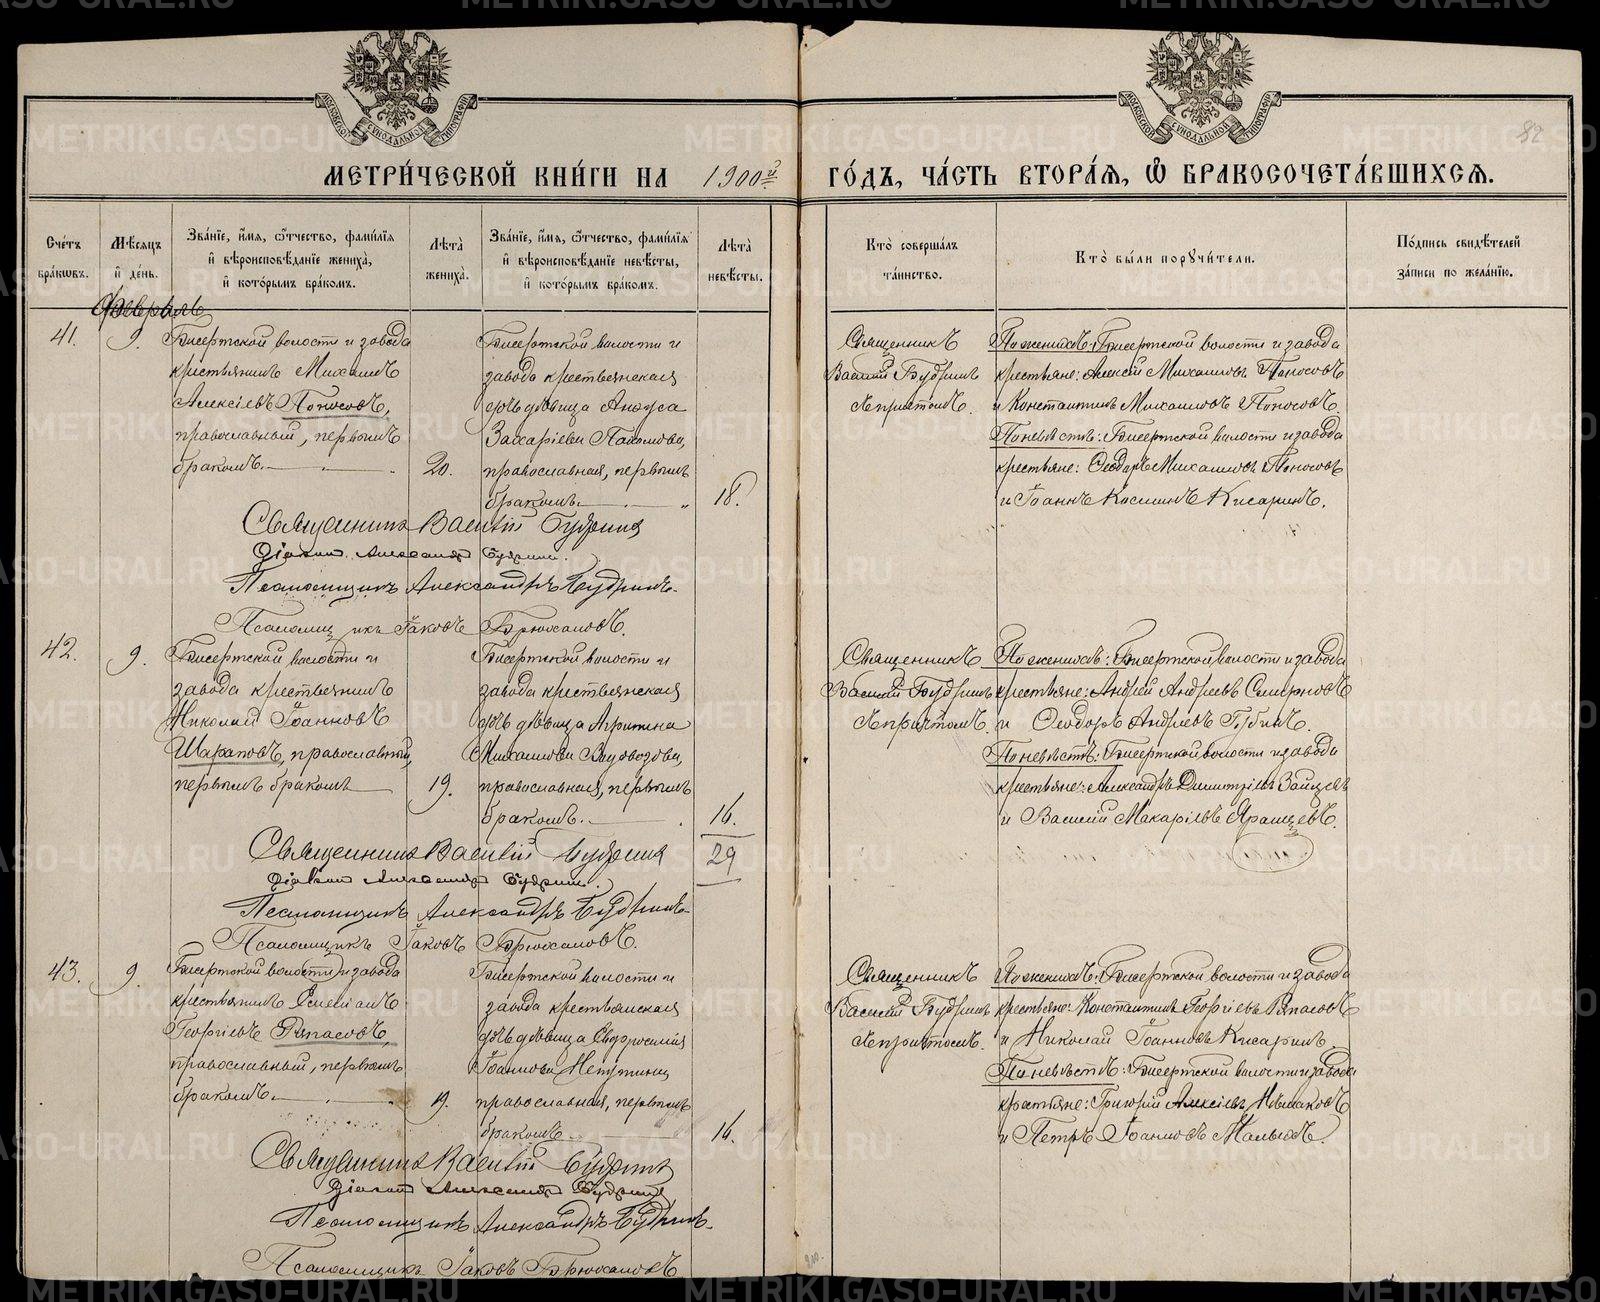 МОСКОВСКОЙ СѴНОДАЛЬНОЙ ТИПОГРАФІИ
МОСКОВСКОЙ СѴНОДАЛЬНОЙ ТИПОГРАФІИ
82
МЕТРИ́ЧЕСКОЙ КНИ́ГИ НА 1900й ГО́ДЪ, ЧА́СТЬ ВТОРА́Я, Ѽ БРАКОСОЧЕТА́ВШИХСЯ.
Сче́тъ бра́кѡвъ.
Мѣ́сяцъ и҆ де́нь.
Зва́нїе, и҆́мя, ѻ҆́тчество, фами́лїя и҆ вѣроисповѣ́данїе жениха̀, и҆ кото́рымъ бра́комъ.
Лѣ́та жениха̀.
Зва́нїе, и҆́мя, ѻ҆́тчество, фами́лїя и҆ вѣроисповѣ́данїе невѣ́сты, и҆ кото́рымъ бра́комъ.
Лѣ́та невѣ́сты.
Кто̀ соверша́лъ та́инство.
Кто̀ бы́ли порꙋчи́тели.
По́дпись свидѣ́телей за́писи по жела́нїю.
Февраль
41.
9.
Бисертской волости и завода
крестьянинъ Михаилъ
Алексіевъ Поносовъ,
православный, первымъ
бракомъ.
20.
Бисертской волости и
завода крестьянская
дѣвица Анфуса
Захаріева Пахомова,
православная, первымъ
бракомъ.
18.
Священникъ
Василій Будринъ
съ причтомъ.
По женихѣ: Бисертской волости и завода
крестьяне: Алексій Михаиловъ Поносовъ
и Константинъ Михаиловъ Поносовъ.
По невѣстѣ: Бисертской волости и завода
крестьяне: Ѳеодоръ Михаиловъ Поносовъ
и Іоаннъ Косминъ Кисаринъ.
Священникъ Василій Будринъ
Діаконъ Александръ Будринъ.
Псаломщикъ Александръ Будринъ.
Псаломщикъ Іаковъ Брюхановъ.
42.
9.
Бисертской волости и
завода крестьянинъ
Николай Іоанновъ
Шараповъ, православный,
первымъ бракомъ
19.
Бисертской волости и
завода крестьянская
дѣвица Агрипина
Михаилова
православная, первымъ
бракомъ.
16.
29
Священникъ
Василій Будринъ
съ причтомъ.
По женихѣ: Бисертской волости и завода
крестьяне: Андрей Андреевъ Смирновъ
и Ѳеодоръ Андреевъ
По невѣстѣ: Бисертской волости и завода
крестьяне: Александръ Димитріевъ Зайцевъ
и Василій Макаріевъ
Священникъ Василій Будринъ
Діаконъ Александръ Будринъ.
Псаломщикъ Александръ Будринъ.
Псаломщикъ Іаковъ Брюхановъ.
43.
9.
Бисертской волости и завода
крестьянинъ
Георгіевъ Ряпасовъ,
православный, первымъ
бракомъ.
19.
Бисертской волости и
завода крестьянская
дѣвица Евфросинія
Іоаннова
православная, первымъ
бракомъ.
16.
Священникъ
Василій Будринъ
съ причтомъ.
По женихѣ: Бисертской волости и завода
крестьяне: Константинъ Георгіевъ Ряпасовъ
и Николай Іоанновъ Кисаринъ.
По невѣстѣ: Бисертской волости и завода
крестьяне: Григорій Алексіевъ
и Петръ Іоанновъ
Священникъ Василій Будринъ
Діаконъ Александръ Будринъ
Псаломщикъ Александръ Будринъ.
Псаломщикъ Іаковъ Брюхановъ
METRIKI.GASO-URAL.RU